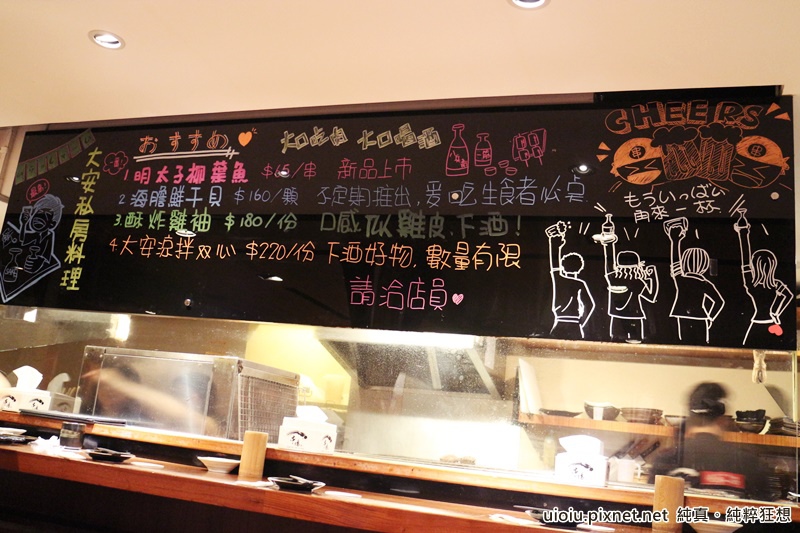 おすすめ
大口吃肉 大口喝酒
CHEERS
大安私房料理
1.明太子柳葉魚 $65/串 新品上市
2.海膽鮮干貝 $160/顆 不定期推出,愛吃生食者必点
3.酥炸雞柚 $180/份 口感似雞皮,下酒!
4.大安涼拌双心 $220/份 下酒好物,數量有限
請洽店員
もういっぱい
再來一杯
uioiu.pixnet.net 純真。純粹狂想